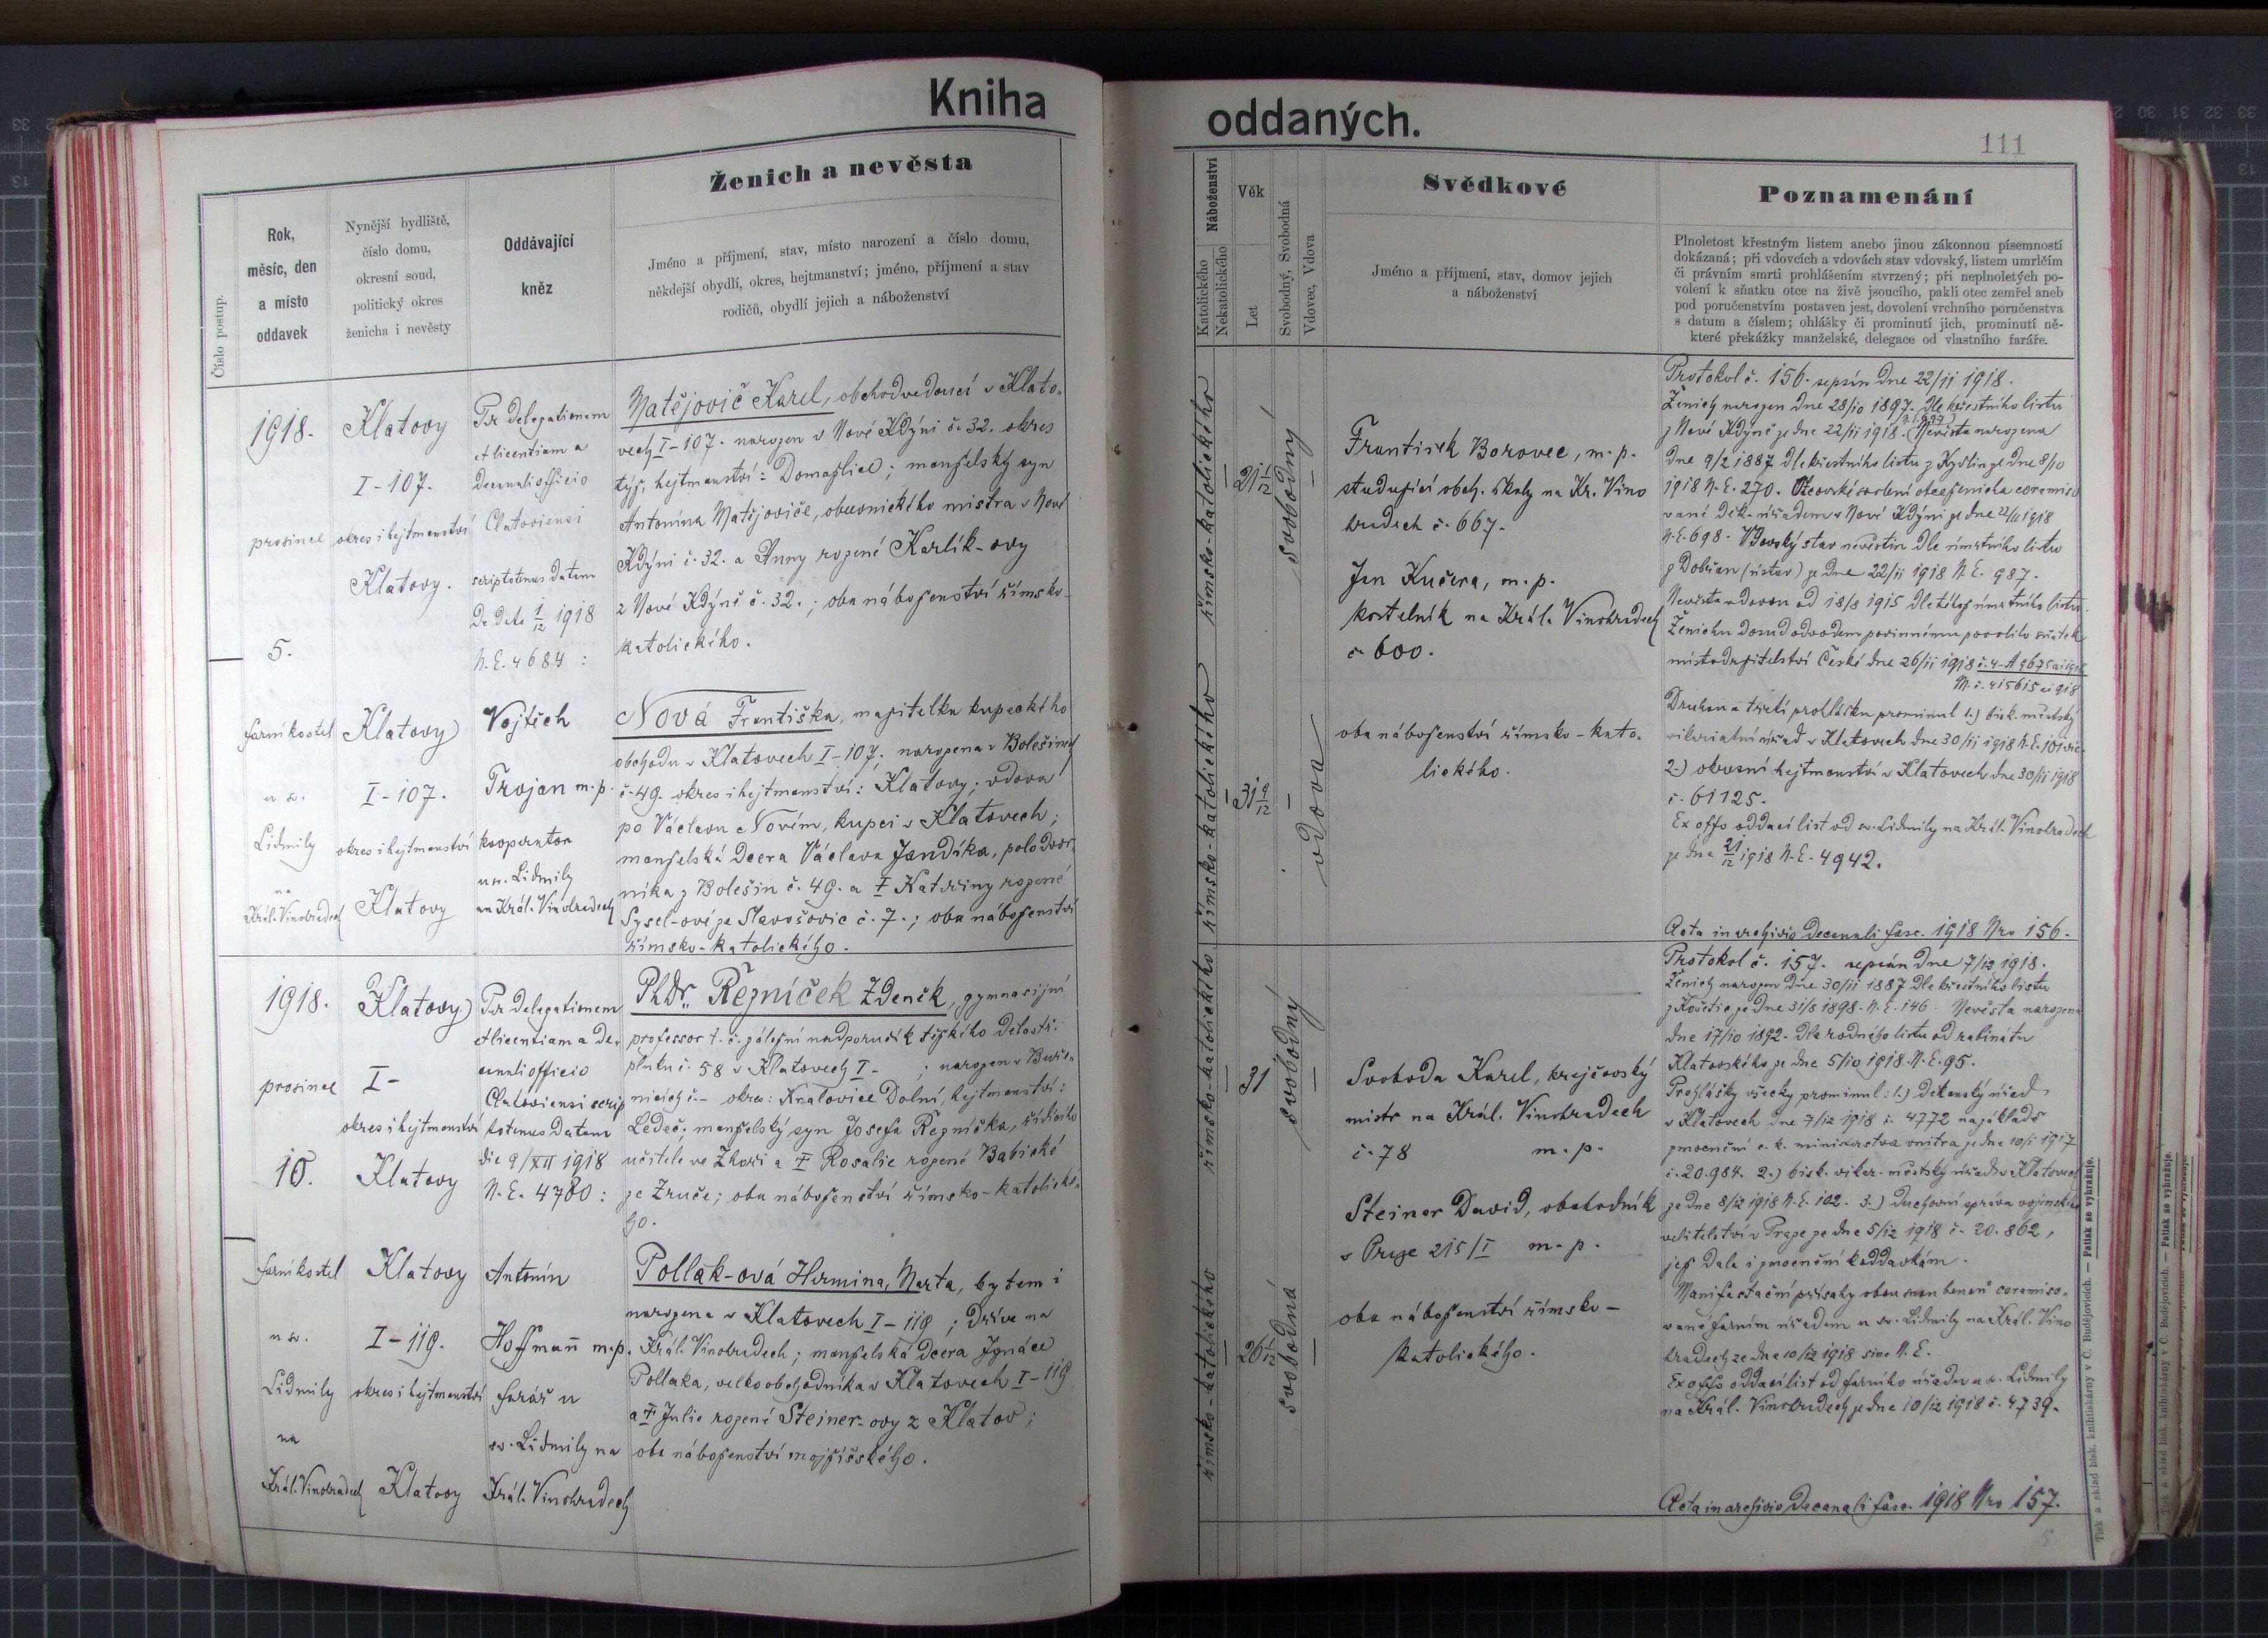 Kniha
oddaných.
111
Číslo postup.
Rok,
měsíc, den
a místo
oddavek
Nynější bydliště,
číslo domu,
okresní soud,
politický okres
ženicha i nevěsty
Oddávající
kněz
Ženich a nevěsta
Jméno a příjmení, stav, místo narození a číslo domu,
někdejší obydlí, okres, hejtmanství; jméno, příjmení a stav
rodičů, obydlí jejich a náboženství
Náboženství
Katolického
Nekatolického
Věk
Let
Svobodný, Svobodná
Vdovec, Vdova
Svědkové
Jméno a příjmení, stav, domov jejich
a náboženství
Poznamenání
Plnoletost křestným listem anebo jinou zákonnou písemností
dokázaná; při vdovcích a vdovách stav vdovský, listem umrlčím
či právním smrti prohlášením stvrzený; při neplnoletých po-
volení k sňatku otce na živě jsoucího, pakli otec zemřel aneb
pod poručenstvím postaven jest, dovolení vrchního poručenstva
s datum a číslem; ohlášky či prominutí jich, prominutí ně-
které překážky manželské, delegace od vlastního faráře.
1918.
prosinec
5.
farní kostel
u sv.
Lidmily
na
Král. Vinohradech
Klatovy
I-107.
okres i hejtmanství
Klatovy.
Klatovy
I-107.
okres i hejtmanství
Klatovy
Per delegationem
et licentiam a
decanali officio
Clatoviensi
scriptotenus datam
De dato 1/12 1918
N.E. 4684:
Vojtěch
Trojan m.p.
kooperator
u sv. Lidmily
na Král. Vinohradech
Matějovič Karel, obchodvedoucí v Klato-
vech I-107. narozen v Nové Kdýni č. 32. okres
týž, hejtmanství: Domažlice; manželský syn
Antonína Matějoviče, obuvnického mistra v Nové
Kdýni č. 32. a Anny rozené Karlík-ovy
z Nové Kdýně č. 32.; oba náboženství římsko-
katolického.
Nová Františka, majitelka kupeckého
obchodu v Klatovech I-107; narozena v Bolešinech
č. 49. okres i hejtmanství: Klatovy; vdova
po Václavu Novém, kupci v Klatovech;
manželská dcera Václava Jandíka, polodvor-
níka z Bolešin č. 49. a † Kateřiny rozené
Sysel-ové ze Slavošovic č. 7.; oba náboženství
římsko-katolického.
římsko-katolického
21 1/12
svobodný
římsko-katolického
31 9/12
vdova
František Borovec, m.p.
studující obch. školy na Kr. Vino
hradech č. 667.
Jan Kučera, m.p.
kostelník na Král. Vinohradech
č. 600.
oba náboženství římsko-kato-
lického.
Protokol č. 156. sepsán dne 22/11 1918.
Ženich narozen dne 28/10 1897. dle křestního listu
z Nové Kdýně ze dne 22/11 1918. Nevěsta narozena
dne 9/2 1887 dle křestního listu z Kydlin ze dne 8/10
1918 N.E. 270. Otcovské svolení otce ženicha coramiso
vané děk. úřadem v Nové Kdýni ze dne 22/11 1918
N.E. 698. Vdovský stav nevěstin dle úmrtního listu
z Dobřan (ústav) ze dne 22/11 1918 N.E. 987.
Nevěsta vdovou od 18/8 1915 dle téhož úmrtního listu.
Ženichu dosud odvodem povinnému povolilo sňatek
místodržitelství České dne 26/11 1918
Druhou a třetí prohlášku prominul 1.) bisk. městský
vikariatní úřad v Klatovech dne 30/11 1918 N.E. 101
2.) okresní hejtmanství v Klatovech dne 30/11 1918
č. 61125.
Ex offo oddací list od sv. Lidmily na Král. Vinohradech
ze dne 21/12 1918 N.E. 4942.
Acta in archivio decanali fasc. 1918 Nro 156.
1918.
prosinec
10.
farní kostel
u sv.
Lidmily
na
Král. Vinohradech
Klatovy
I-
okres i hejtmanství
Klatovy
Klatovy
I-119.
okres i hejtmanství
Klatovy
Per delegationem
et licentiam a de-
canali officio
Clatoviensi scrip
totenus datam
die 9/XII 1918
N.E. 4780:
Antonín
Hoffmann m.p.
farář u
sv. Lidmily na
Král. Vinohradech
PhDr. Řezníček Zdeněk, gymnasijní
professor t. č. záložní nadporučík těžkého dělostř.
pluku č. 58 v Klatovech I- ; narozen v Buře-
nicích č.- okres: Kralovice Dolní, hejtmanství:
Ledeč; manželský syn Josefa Řezníčka, řídícího
učitele ve Zhoři a † Rosalie rozené Babické
ze Zruče; oba náboženství římsko-katolické-
ho.
Pollak-ová Hermina, Marta, bytem i
narozena v Klatovech I-119; dříve na
Král. Vinohradech; manželská dcera Ignáce
Pollaka, velkoobchodníka v Klatovech I-119
a † Julie rozené Steiner-ovy z Klatov;
oba náboženství mojžíšského.
římsko-katolického
31
svobodný
římsko-katolického
26 1/12
svobodná
Svoboda Karel, krejčovský
mistr na Král. Vinohradech
č. 78 m.p.
Steiner David, obchodník
v Praze 215/I m.p.
oba náboženství římsko-
katolického.
Protokol č. 157. sepsán dne 7/12 1918.
Ženich narozen dne 30/11 1887 dle křestního listu
z Košetic ze dne 31/8 1898. N.E. 146. Nevěsta narozena
dne 17/10 1892. dle rodného listu od rabinátu
Klatovského ze dne 5/10 1918. N.E. 95.
Prohlášky všecky prominul: 1.) Děkanský úřad
v Klatovech dne 7/12 1918 č. 4772 na základě
zmocnění c. k. ministerstva vnitra ze dne 10/1 1917
č. 20.984. 2.) bisk. vikar. městský úřad v Klatovech
ze dne 8/12 1918 N.E. 102. 3.) duchovní správa vojenského
velitelství v Praze ze dne 5/12 1918 č. 20.862,
jež dala i zmocnění k oddavkám.
Manifestační přísahy obou snoubenců coramiso-
vané farním úřadem u sv. Lidmily na Král. Vino
hradech ze dne 10/12 1918 sine N.E.
Ex offo oddací list od farního úřadu u sv. Lidmily
na Král. Vinohradech ze dne 10/12 1918 č. 4739.
Acta in archivio Decanali fasc. 1918 Nro 157.
Tisk a sklad bisk. knihtiskárny v Č. Budějovicích. — Patisk se vyhražuje.